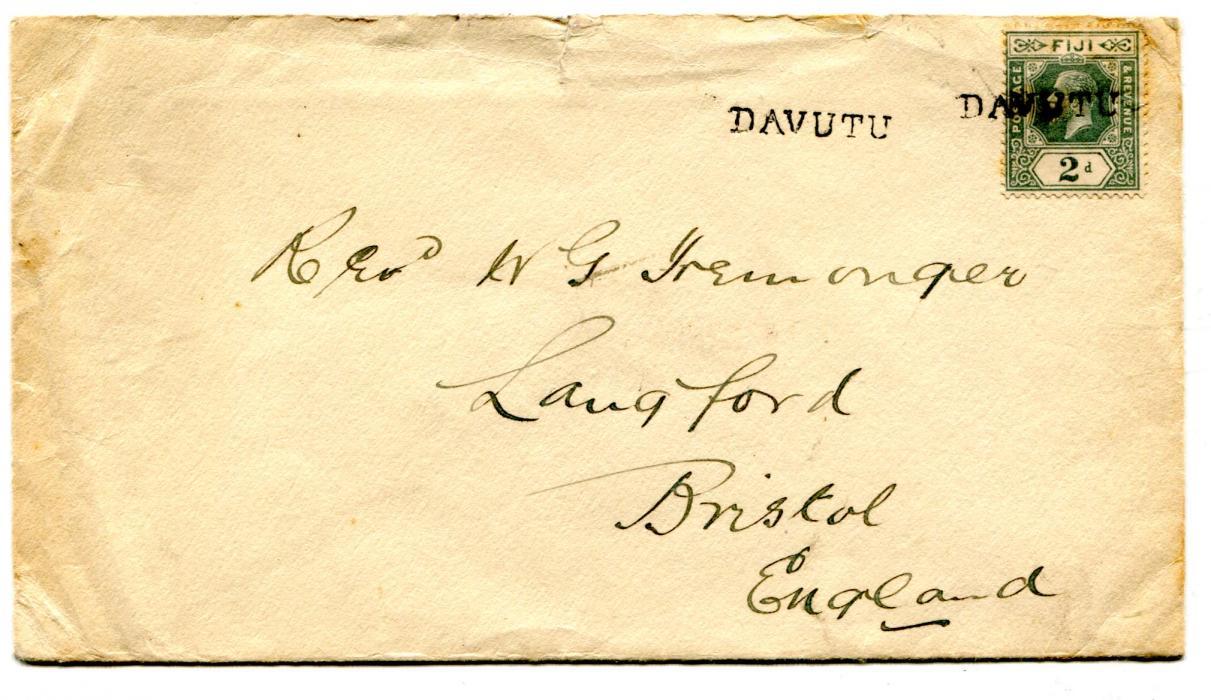 FIJI
POSTAGE & REVENUE
2d
DAVUTU DAVUTU
Revd W G Iremonger
Langford
Bristol
England